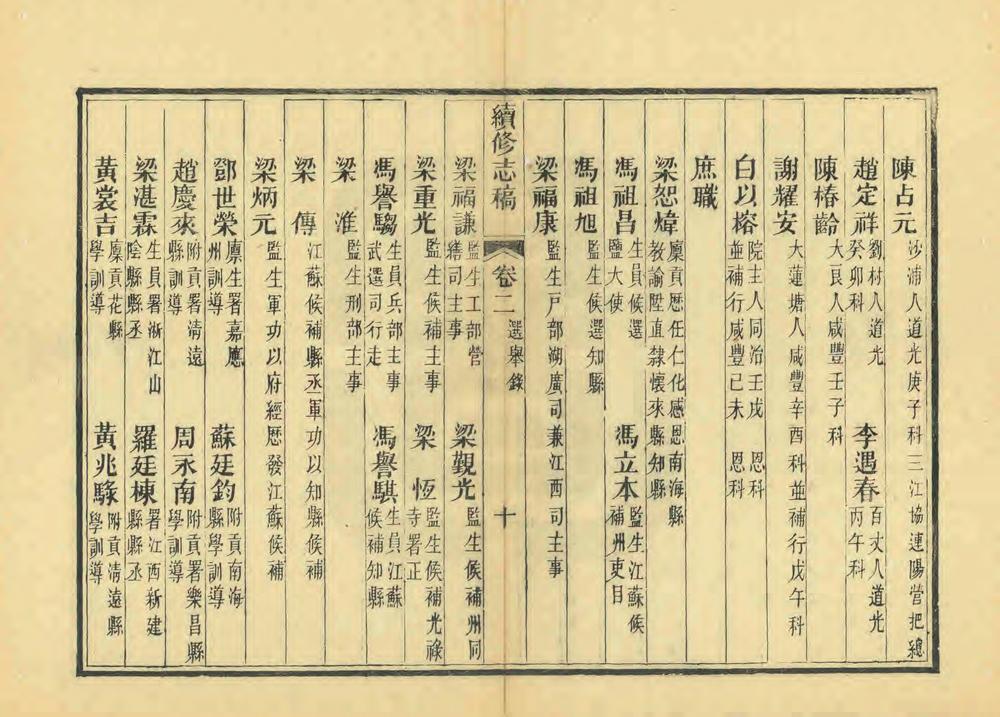 陳占元 沙浦人道光庚子科三江協連陽營把總
趙定祥 劉村人道光癸卯科 李遇春 百丈人道光丙午科
陳椿齡 大良人咸豐壬子科
謝耀安 大蓮塘人咸豐辛酉科並補行戊午科
白以榕 院主人同治壬戌恩科並補行咸豐己未恩科
庶職
梁恕煒 廩貢歷任仁化感恩南海縣教諭陞直隸懷來縣知縣
馮祖昌 生員候選鹽大使 馮立本 監生江蘇候補州吏目
馮祖旭 監生候選知縣
梁福康 監生戸部湖廣司兼江西司主事
續修志稿 卷二 選舉錄 十
梁福謙 監生工部營繕司主事 梁觀光 監生候補州同
梁重光 監生候補主事 梁恆 監生候補光祿寺署正
馮譽驄 生員兵部主事武選司行走 馮譽騏 生員江蘇候補知縣
梁淮 監生刑部主事
梁傳 江蘇候補縣丞軍功以知縣候補
梁炳元 監生軍功以府經歷發江蘇候補
鄧世榮 廩生署嘉應州訓導 蘇廷鈞 附貢南海縣學訓導
趙慶來 附貢署清遠縣訓導 周永南 附貢署樂昌縣學訓導
梁湛霖 生員署浙江山陰縣縣丞 羅廷棟 署江西新建縣縣丞
黃裳吉 廩貢花縣學訓導 黃兆騄 附貢清遠縣學訓導